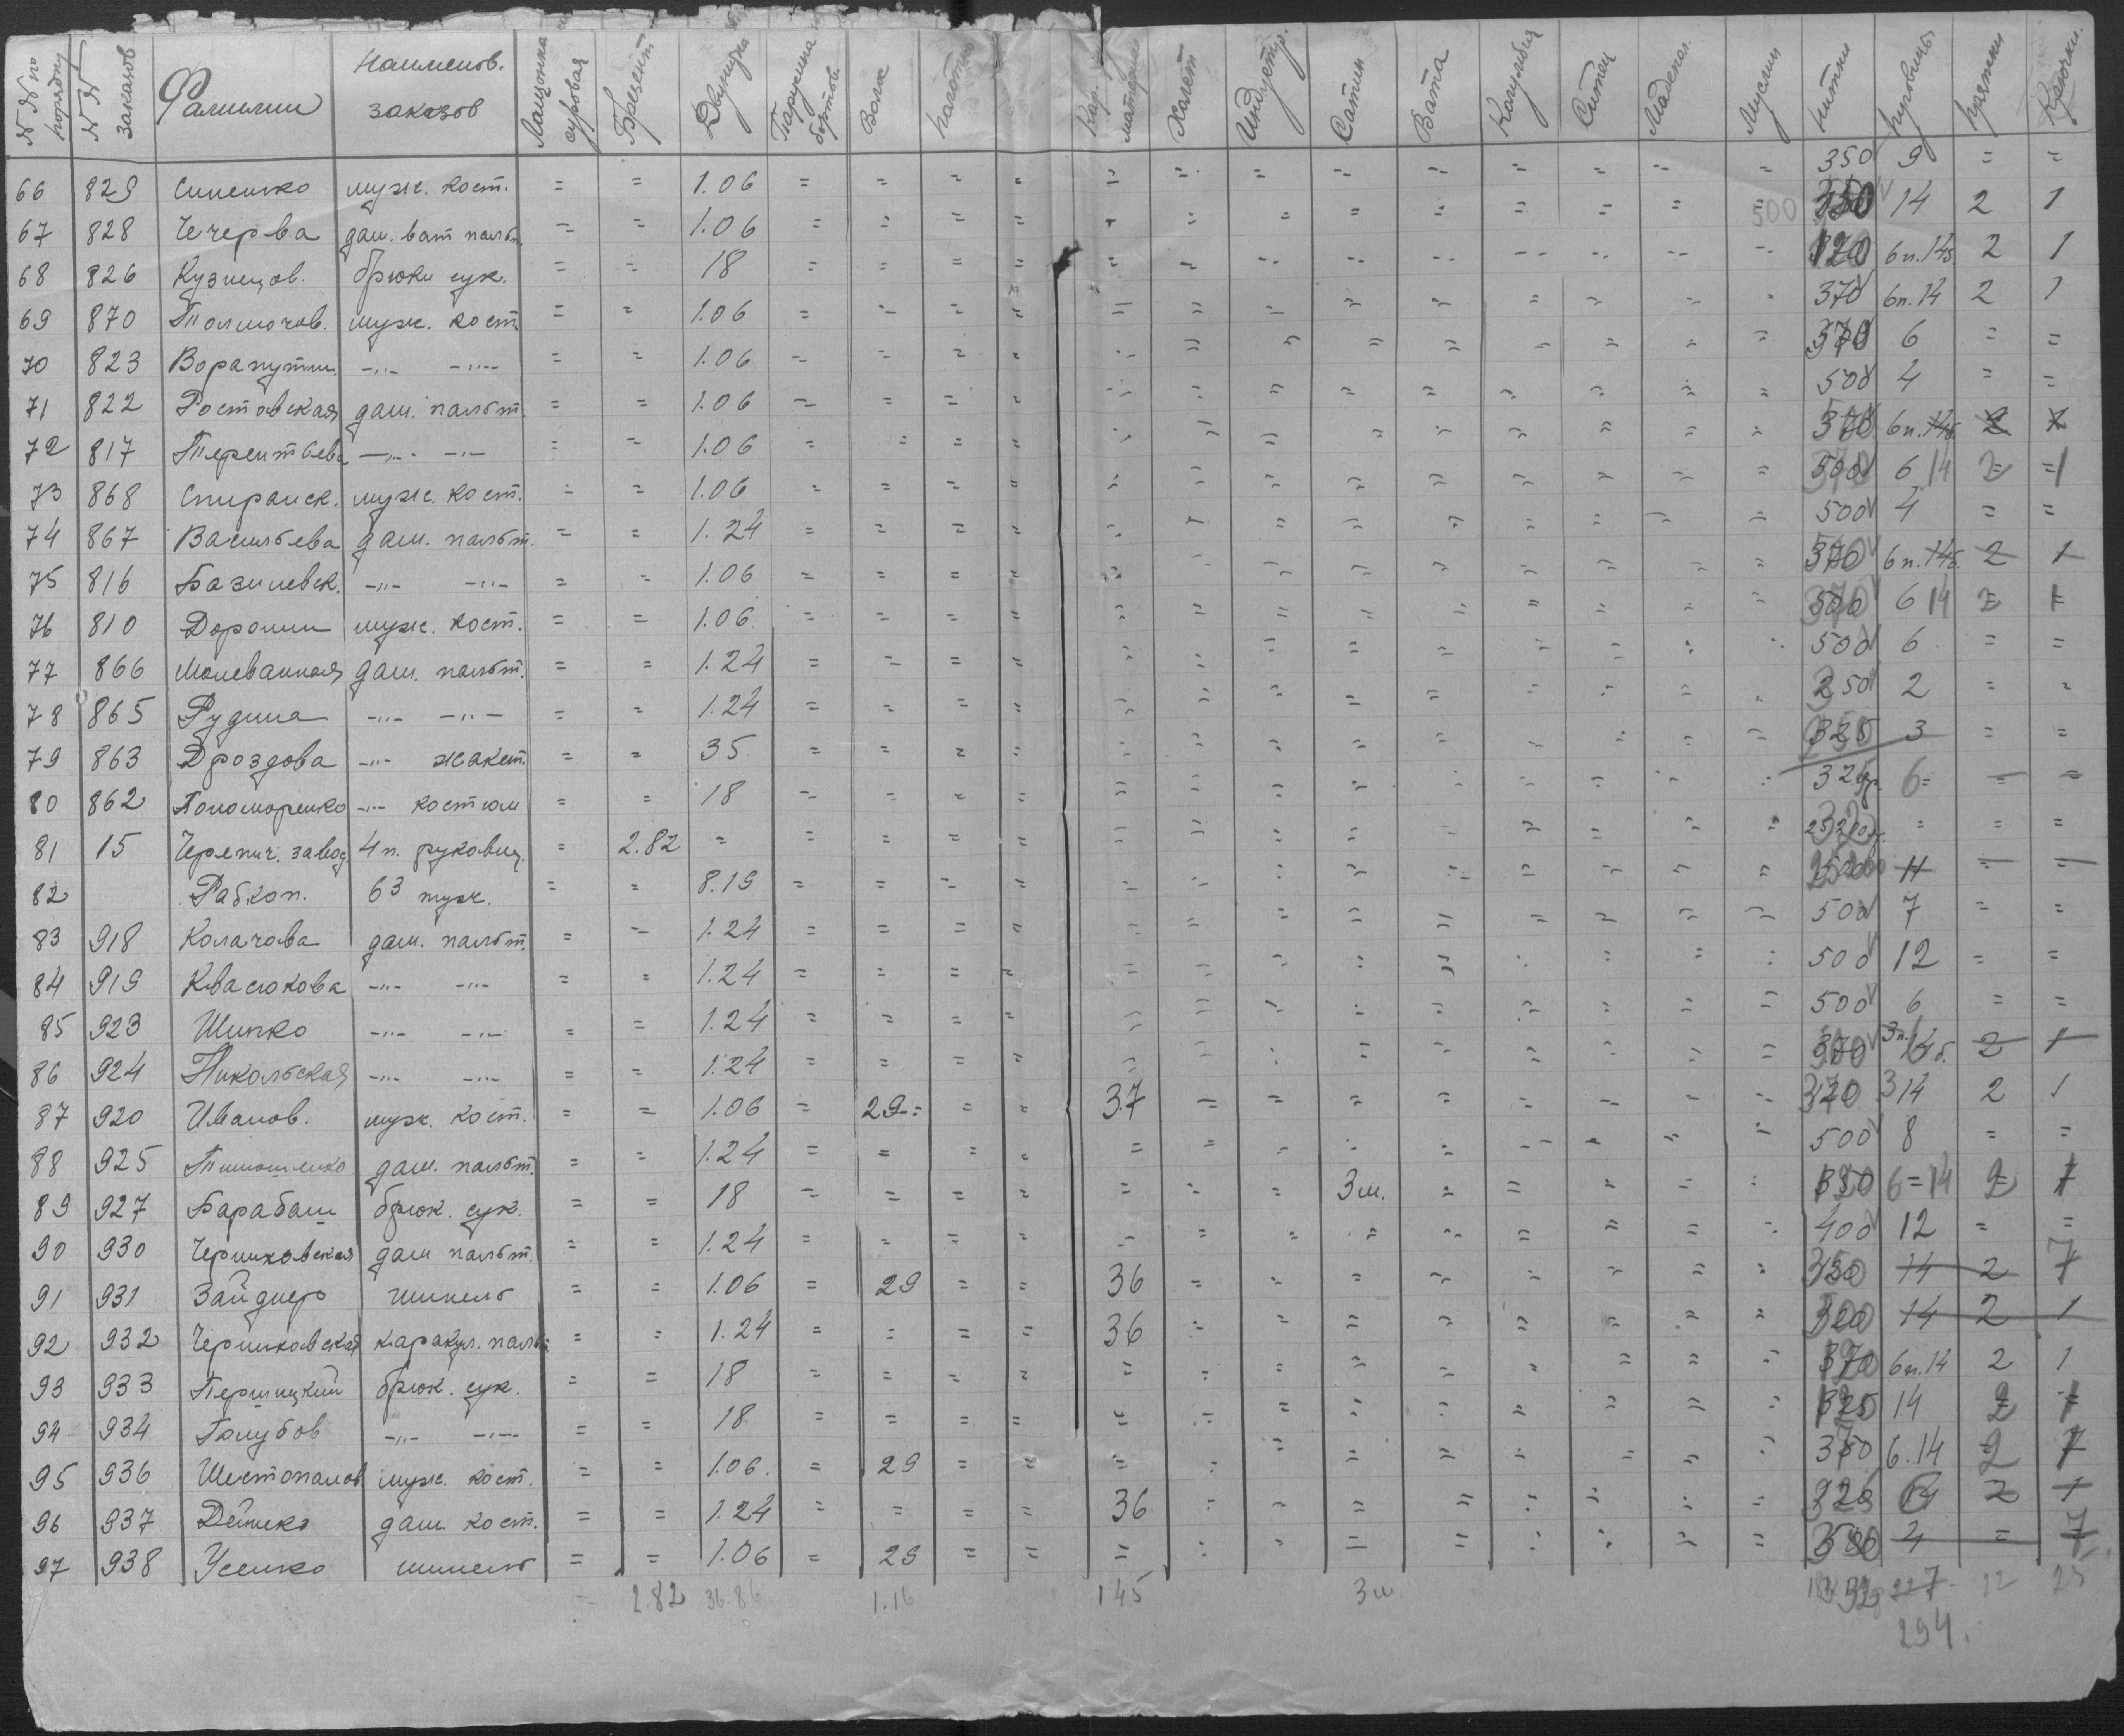 № № по порядку | № № заказов | Фамилии | Наименов. заказов | суровая | Брезент | Двунитка | Парусина бортов. | Волос | полотно | | Кар. материал | Холст | Индустр. | Сатин | Вата | Коленкор | Ситец | Мадепол. | Муслин | Нитки | пуговицы | пряжки | Крючки.
66 829 Синенко муж. кост. = = 1.06 = = = = = = = = = = = = = 350 9 = =
67 828 Чечерва дам. ват пальт. = = 1.06 = = = = = = = = = = = = = 500 14 2 1
68 826 Кузнецов. брюки сук. = = 18 = = = = = = = = = = = = = 120 6п.14б. 2 1
69 870 Толмочов. муж. кост. = = 1.06 = = = = = = = = = = = = = 370 6п.14 2 1
70 823 Ворапутин. -"- -"- = = 1.06 = = = = = = = = = = = = = 370 6 = =
71 822 Ростовская дам. пальт. = = 1.06 = = = = = = = = = = = = = 500 4 = =
72 817 Терентьева -"- -"- = = 1.06 = = = = = = = = = = = = = 370 6п.14б. 2 1
73 868 Спиранск. муж. кост. = = 1.06 = = = = = = = = = = = = = 500 6 14 2 1
74 867 Васильева дам. пальт. = = 1.24 = = = = = = = = = = = = = 500 4 = =
75 816 Базилевск. -"- -"- = = 1.06 = = = = = = = = = = = = = 370 6п.14б. 2 1
76 810 Доронин муж. кост. = = 1.06 = = = = = = = = = = = = = 500 6 14 2 1
77 866 Малеванная дам. пальт. = = 1.24 = = = = = = = = = = = = = 500 6 = =
78 865 Рудина -"- -"- = = 1.24 = = = = = = = = = = = = = 250 2 = =
79 863 Дроздова -"- жакет. = = 35 = = = = = = = = = = = = = 325 3 = =
80 862 Пономоренко -"- костюм = = 18 = = = = = = = = = = = = = 325 6 = = =
81 15 Черепич. завод 4 п. рукавиц. = 2.82 = = = = = = = = = = = = = = = = =
82 Рабкоп. 63 муж. = = 8.19 = = = = = = = = = = = = = 11 = =
83 918 Колачова дам. пальт. = = 1.24 = = = = = = = = = = = = = 500 7 = =
84 919 Квасюкова -"- -"- = = 1.24 = = = = = = = = = = = = = 500 12 = =
85 923 Шипко -"- -"- = = 1.24 = = = = = = = = = = = = = 500 6 = =
86 924 Никольская -"- -"- = = 1.24 = = = = = = = = = = = = = 370 3п.14б. 2 1
87 920 Иванов. муж. кост. = = 1.06 = 29 = = = 37 = = = = = = = = 370 3 14 2 1
88 925 Тимошенко дам. пальт. = = 1.24 = = = = = = = = = = = = = 500 8 = =
89 927 Барабаш брюк. сук. = = 18 = = = = = = = 3ш. = = = = = 6=14 2 1
90 930 Черниховская дам пальт. = = 1.24 = = = = = = = = = = = = = 400 12 = =
91 931 Зайднер шинель = = 1.06 = 29 = = 36 = = = = = = = = 350 14 2 7
92 932 Черниховская каракул. пальт = = 1.24 = = = = 36 = = = = = = = = 14 2 1
93 933 Перлицкий брюк. сук. = = 18 = = = = = = = = = = = = = 370 6п.14 2 1
94 934 Голубов -"- -"- = = 18 = = = = = = = = = = = = = 325 14 2 1
95 936 Шестопалов муж. кост. = = 1.06. = 29 = = = = = = = = = = = 6.14 2 7
96 937 Дейнеко дам. кост. = = 1.24 = = = = 36 = = = = = = = = 14 2 1
97 938 Усенко шинель = = 1.06 = 29 = = = = = = = = = = = 4 = 7
2.82 36.86 1.16 145 3ш. 227 22 25
294.